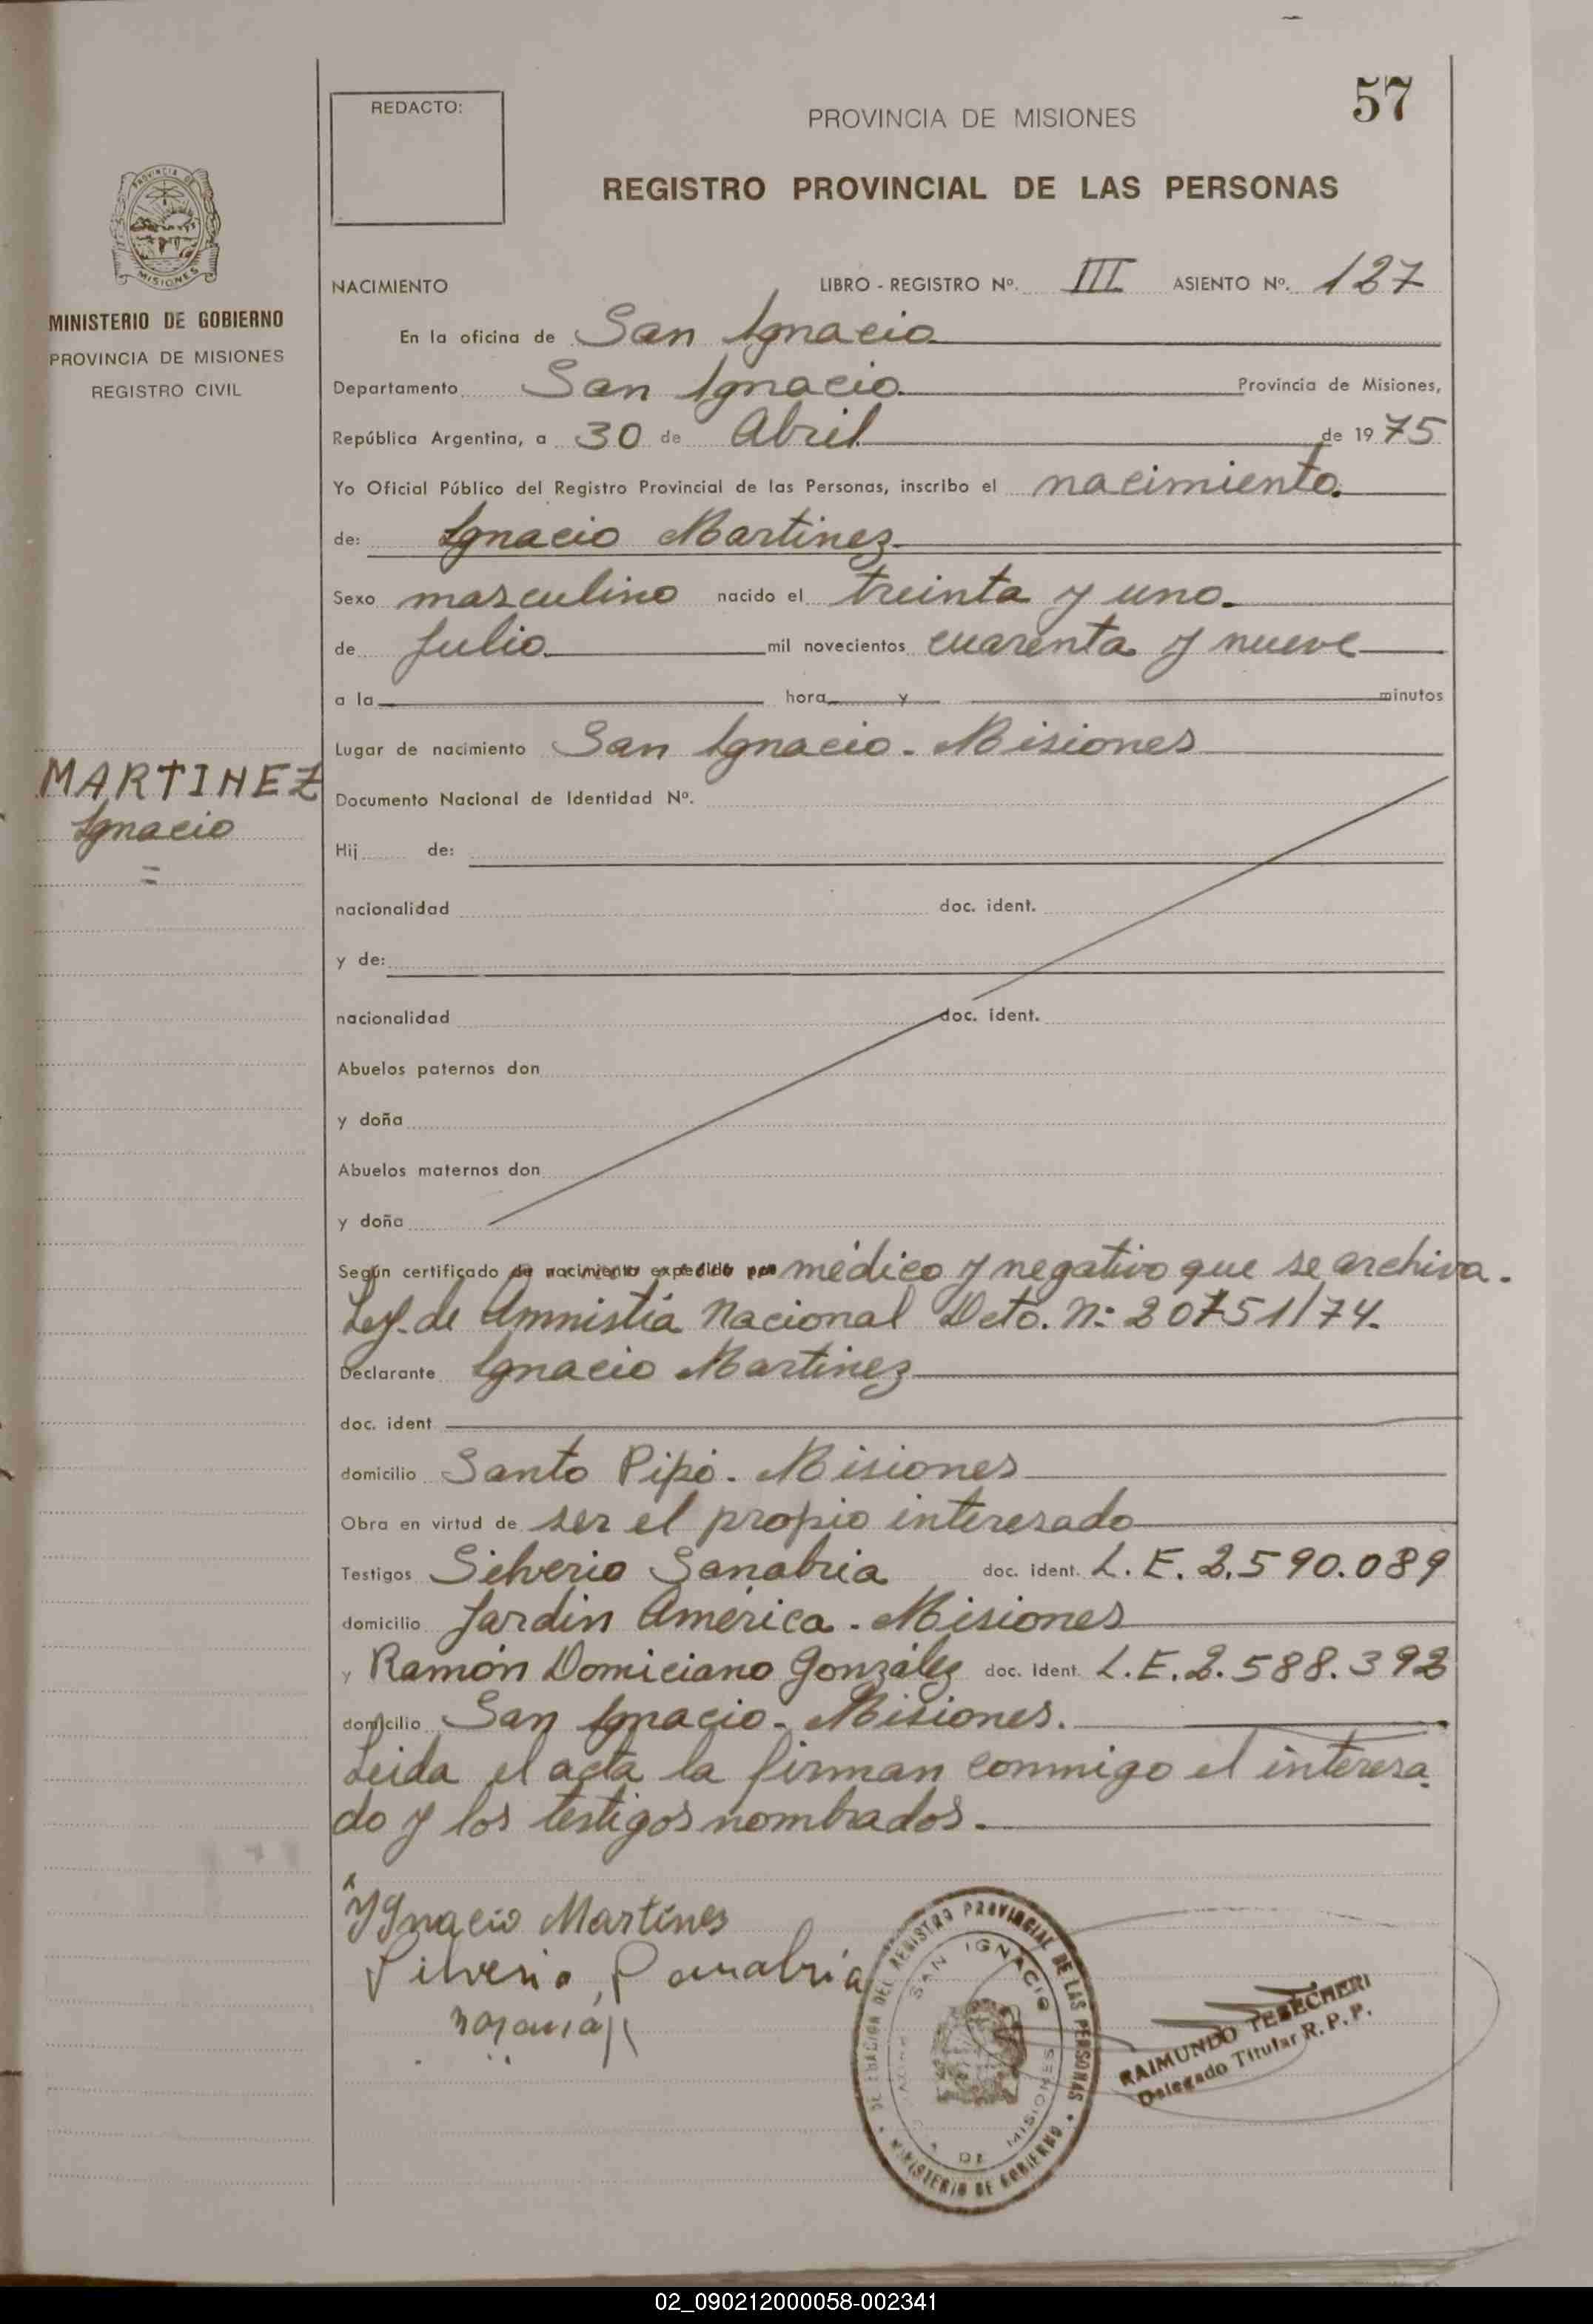 57
REDACTO:
PROVINCIA DE MISIONES
REGISTRO PROVINCIAL DE LAS PERSONAS
PROVINCIA DE
MISIONES
MINISTERIO DE GOBIERNO
PROVINCIA DE MISIONES
REGISTRO CIVIL
NACIMIENTO LIBRO - REGISTRO Nº. III ASIENTO Nº. 127
En la oficina de San Ignacio
Departamento San Ignacio Provincia de Misiones,
República Argentina, a 30 de Abril de 1975
Yo Oficial Público del Registro Provincial de las Personas, inscribo el nacimiento.
de: Ignacio Martinez
Sexo masculino nacido el treinta y uno.
de Julio mil novecientos cuarenta y nueve
a la hora y minutos
Lugar de nacimiento San Ignacio - Misiones
MARTINEZ
Ignacio
=
Documento Nacional de Identidad Nº.
Hij de:
nacionalidad doc. ident.
y de:
nacionalidad doc. ident.
Abuelos paternos don
y doña
Abuelos maternos don
y doña
Según certificado de nacimiento expedido por médico y negativo que se archiva.
Ley. de Amnistía Nacional Dcto. N: 20751/74.
Declarante Ignacio Martinez
doc. ident
domicilio Santo Pipó - Misiones
Obra en virtud de ser el propio interesado
Testigos Silverio Sanabria doc. ident. L.E. 2.590.089
domicilio Jardín América - Misiones
y Ramón Domiciano González doc. ident. L.E. 2.588.392
domicilio San Ignacio - Misiones.
Leida el acta la firman conmigo el interesa-
do y los testigos nombrados.
YGnacio Martines
Silverio Sanabria
DELEGACION DEL REGISTRO PROVINCIAL DE LAS PERSONAS
SAN IGNACIO
DE MISIONES
MINISTERIO DE GOBIERNO
RAIMUNDO TEBECHERI
Delegado Titular R. P. P.
02_090212000058-002341